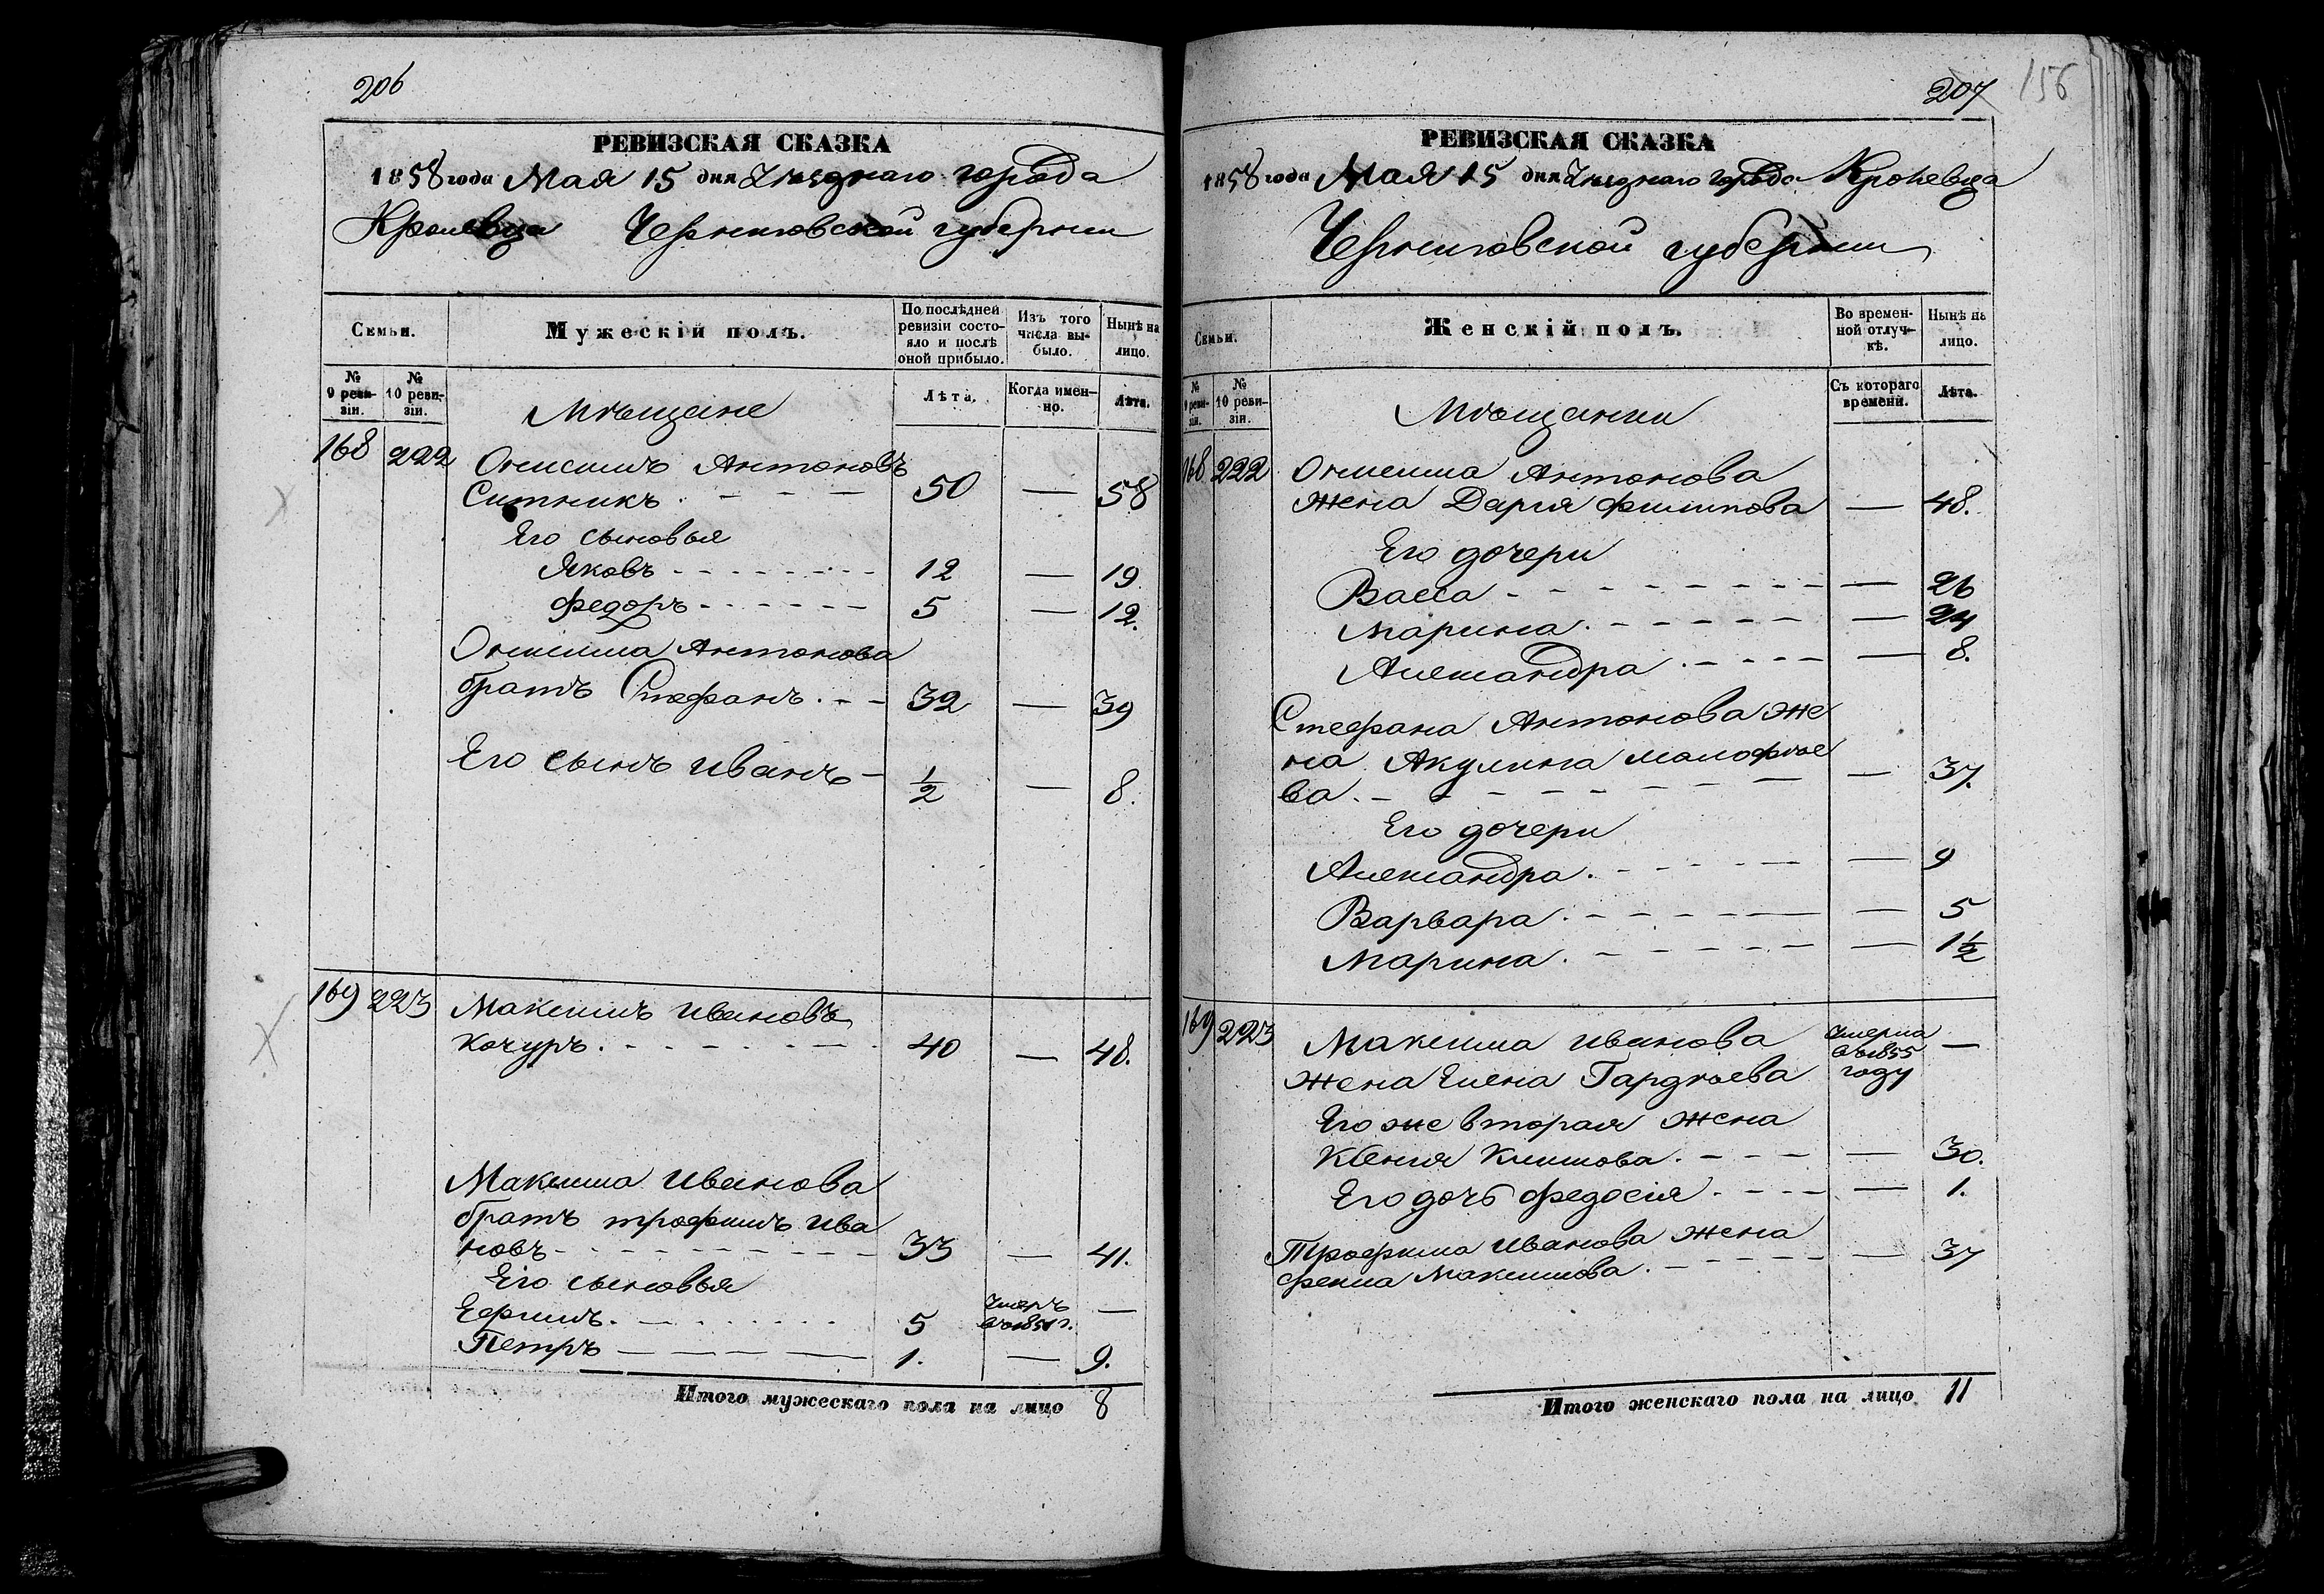 206
РЕВИЗСКАЯ СКАЗКА
1858 года Мая 15 дня Уѣзднаго города
Кролевца Черниговской губернии
Семьи.
Мужескій полъ.
По послѣдней ревизіи состояло и послѣ оной прибыло.
Изъ того числа выбыло.
Нынѣ на лицо.
№ 9 ревизіи.
№ 10 ревизіи.
Мѣщане
Лѣта.
Когда именно.
Лѣта.
168 222 Онисимъ Антоновъ
Ситникъ. - - - 50 — 58
Его сыновья
Яковъ - - - - 12 — 19
Федоръ - - - - 5 — 12.
Онисима Антонова
братъ Стефанъ. - - 32 — 39
Его сынъ Иванъ - 1/2 — 8.
169 223 Максимъ Ивановъ
Кочуръ. - - - - 40 — 48.
Максима Иванова
братъ Трофимъ Ива
новъ - - - - 33 — 41.
Его сыновья
Ефимъ. - - - 5 Умеръ въ 1851 г. —
Петръ — — — 1. — 9.
Итого мужескаго пола на лицо 8
207 156
РЕВИЗСКАЯ СКАЗКА
1858 года Мая 15 дня Уѣзднаго города Кролевца
Черниговской губернии
Семьи.
Женскій полъ.
Во временной отлучкѣ.
Нынѣ на лицо.
№ 9 ревизіи.
№ 10 ревизіи.
Мѣщанки
Съ котораго времени.
Лѣта.
168 222 Онисима Антонова
жена Дарія Филипова — 48.
Его дочери
Васса - - - - — 26
Марина. - - - - — 24
Александра. - - - — 8.
Стефана Антонова же
на Акулина Малофѣе
ва. - - - - — 37.
Его дочери
Александра. - - - — 9
Варвара. - - - — 5
Марина. - - - — 1 1/2
169 223 Максима Иванова
жена Елена Гардѣева Умерла въ 1855 году —
Его же вторая жена
Ксенія Климова. - - - — 30.
Его дочь Федосія. - - - — 1.
Трофима Иванова жена
Фекла Максимова. - - - — 37
Итого женскаго пола на лицо 11